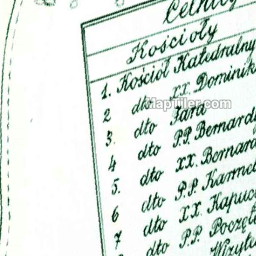 Kościoły
1. Kościół Katedralny
2 dto XX. Dominik
3. dto Fara
4 dto P.P. Bernardy
5. dto XX. Bernard
6 dto P.P. Karmel
7 dto XX. Kapuc
dto P.P. Poczęt
Wizyte
MapTiler.com